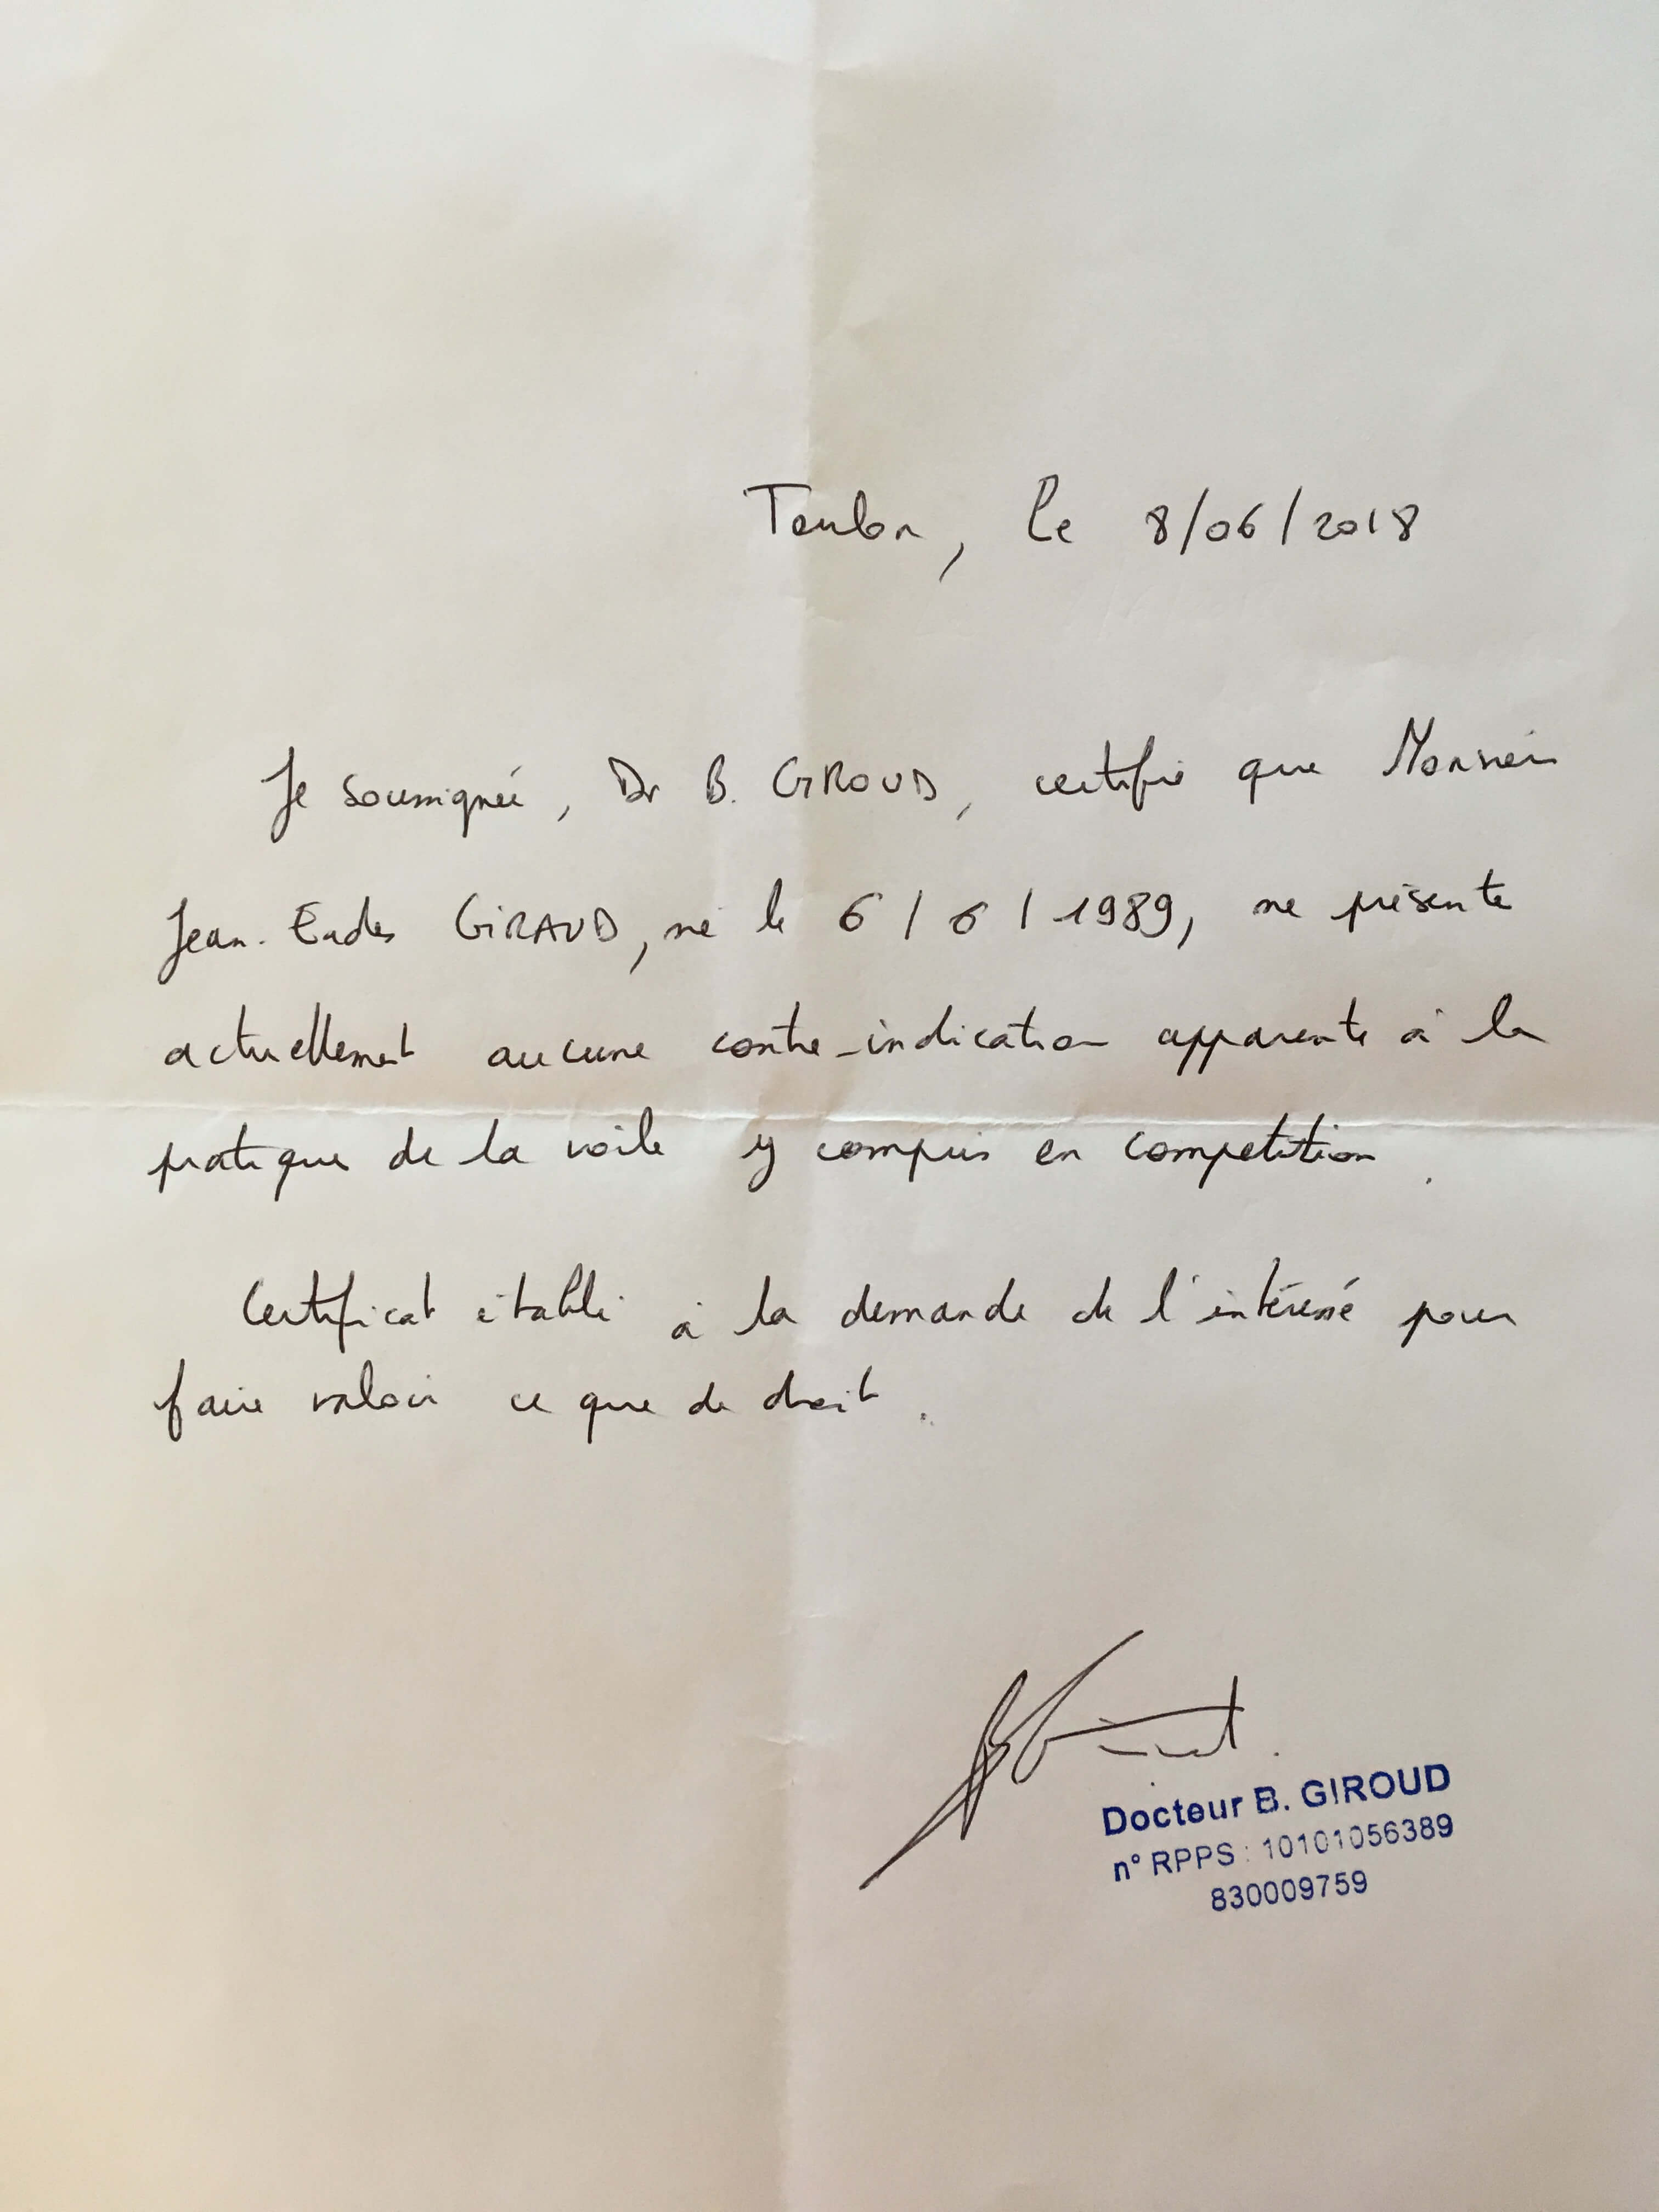 Toulon, le 8/06/2018
Je soussignée, Dr B. GIROUD, certifie que Monsieur
Jean-Eudes GIRAUD, né le 6/6/1989, ne présente
actuellement aucune contre-indication apparente à la
pratique de la voile y compris en competition.
Certificat établi à la demande de l'intéressé pour
faire valoir ce que de droit.
Docteur B. GIROUD
n° RPPS : 10101056389
830009759